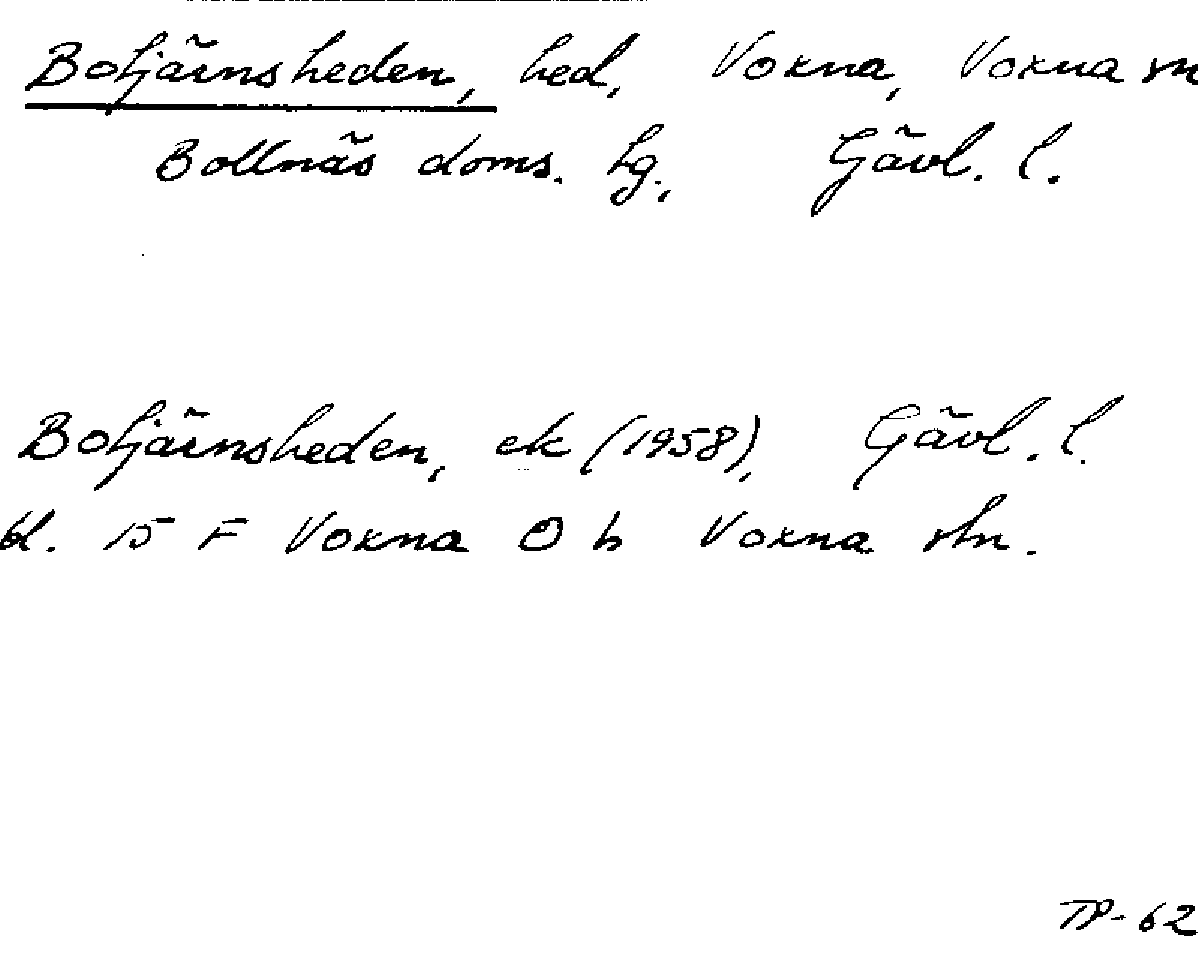 Botjärnsheden, hed, Voxna, Voxna sn
Bollnäs doms. hg., Gävl. l.
Botjärnsheden, ek (1958), Gävl. l.
bl. 15 F Voxna 0 b Voxna stn.
TP-62